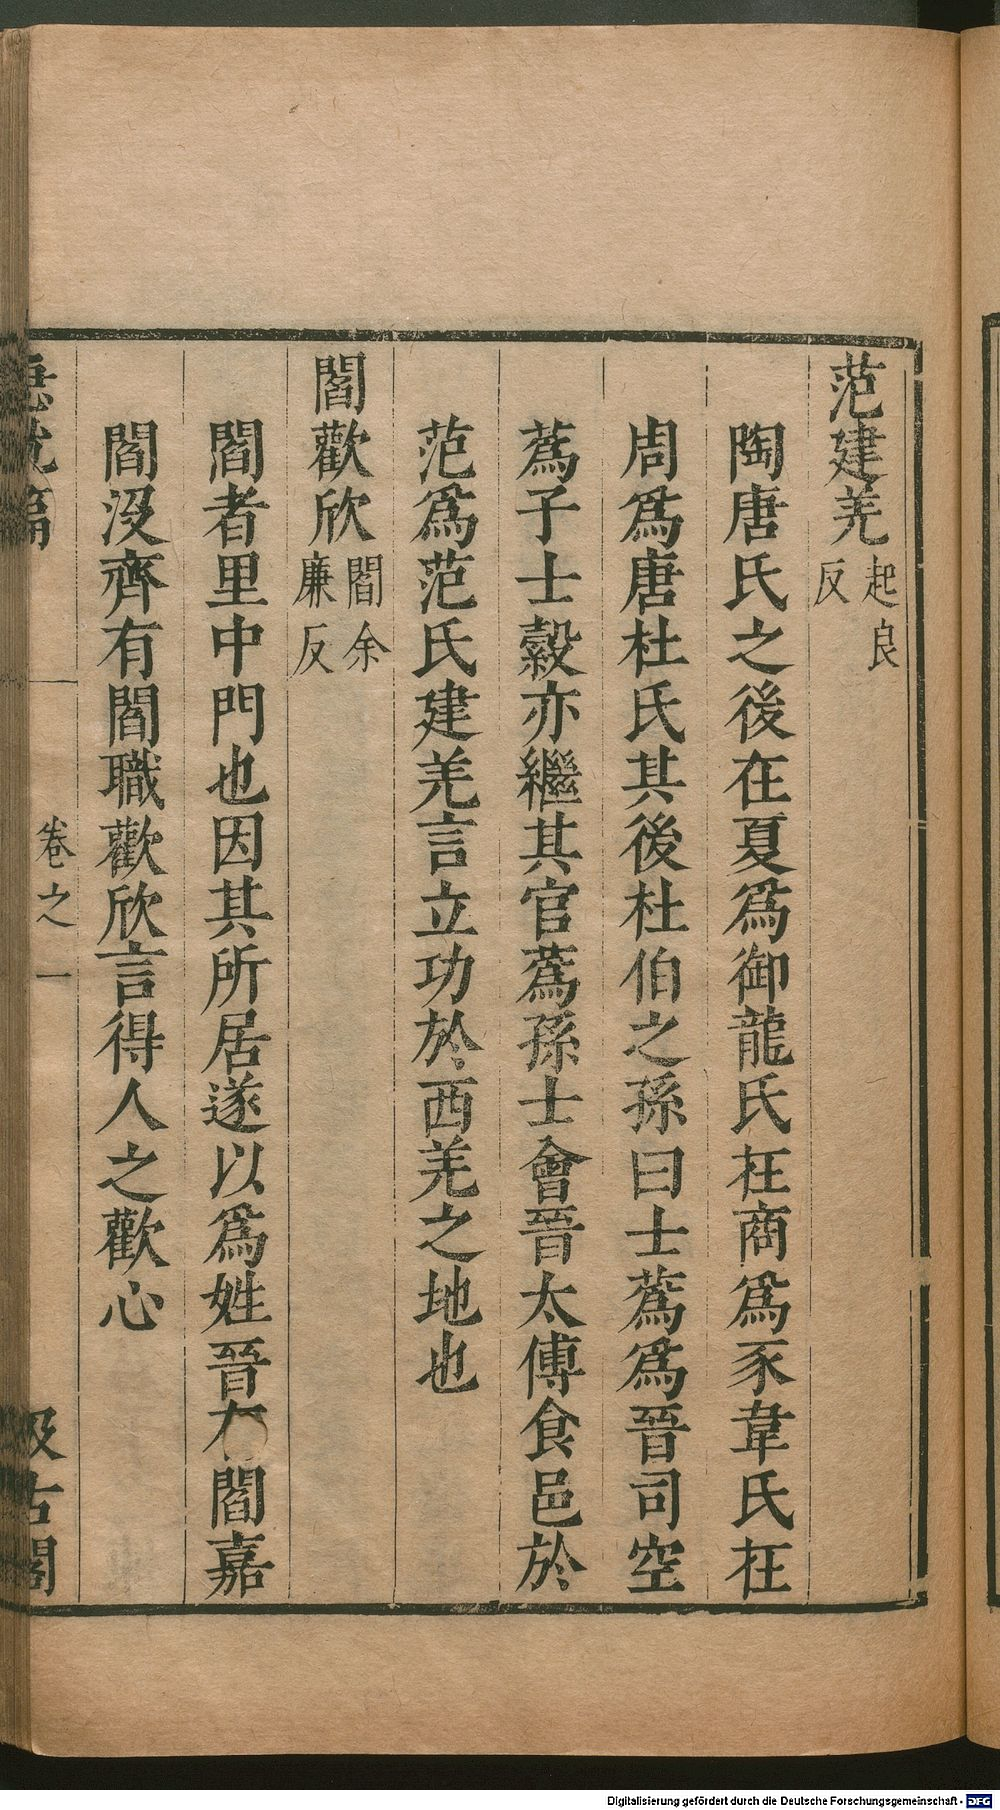 范建羌起良反
陶唐氏之後在夏爲御龍氏在商爲豕韋氏在
周爲唐杜氏其後杜伯之孫曰士蔿爲晉司空
蔿子士縠亦繼其官蔿孫士會晉太傅食邑於
范爲范氏建羌言立功於西羌之地也
閻歡欣閻余廉反
閻者里中門也因其所居遂以爲姓晉有閻嘉
閻沒齊有閻職歡欣言得人之歡心
急就篇
卷之一
汲古閣
Digitalisierung gefördert durch die Deutsche Forschungsgemeinschaft - DFG